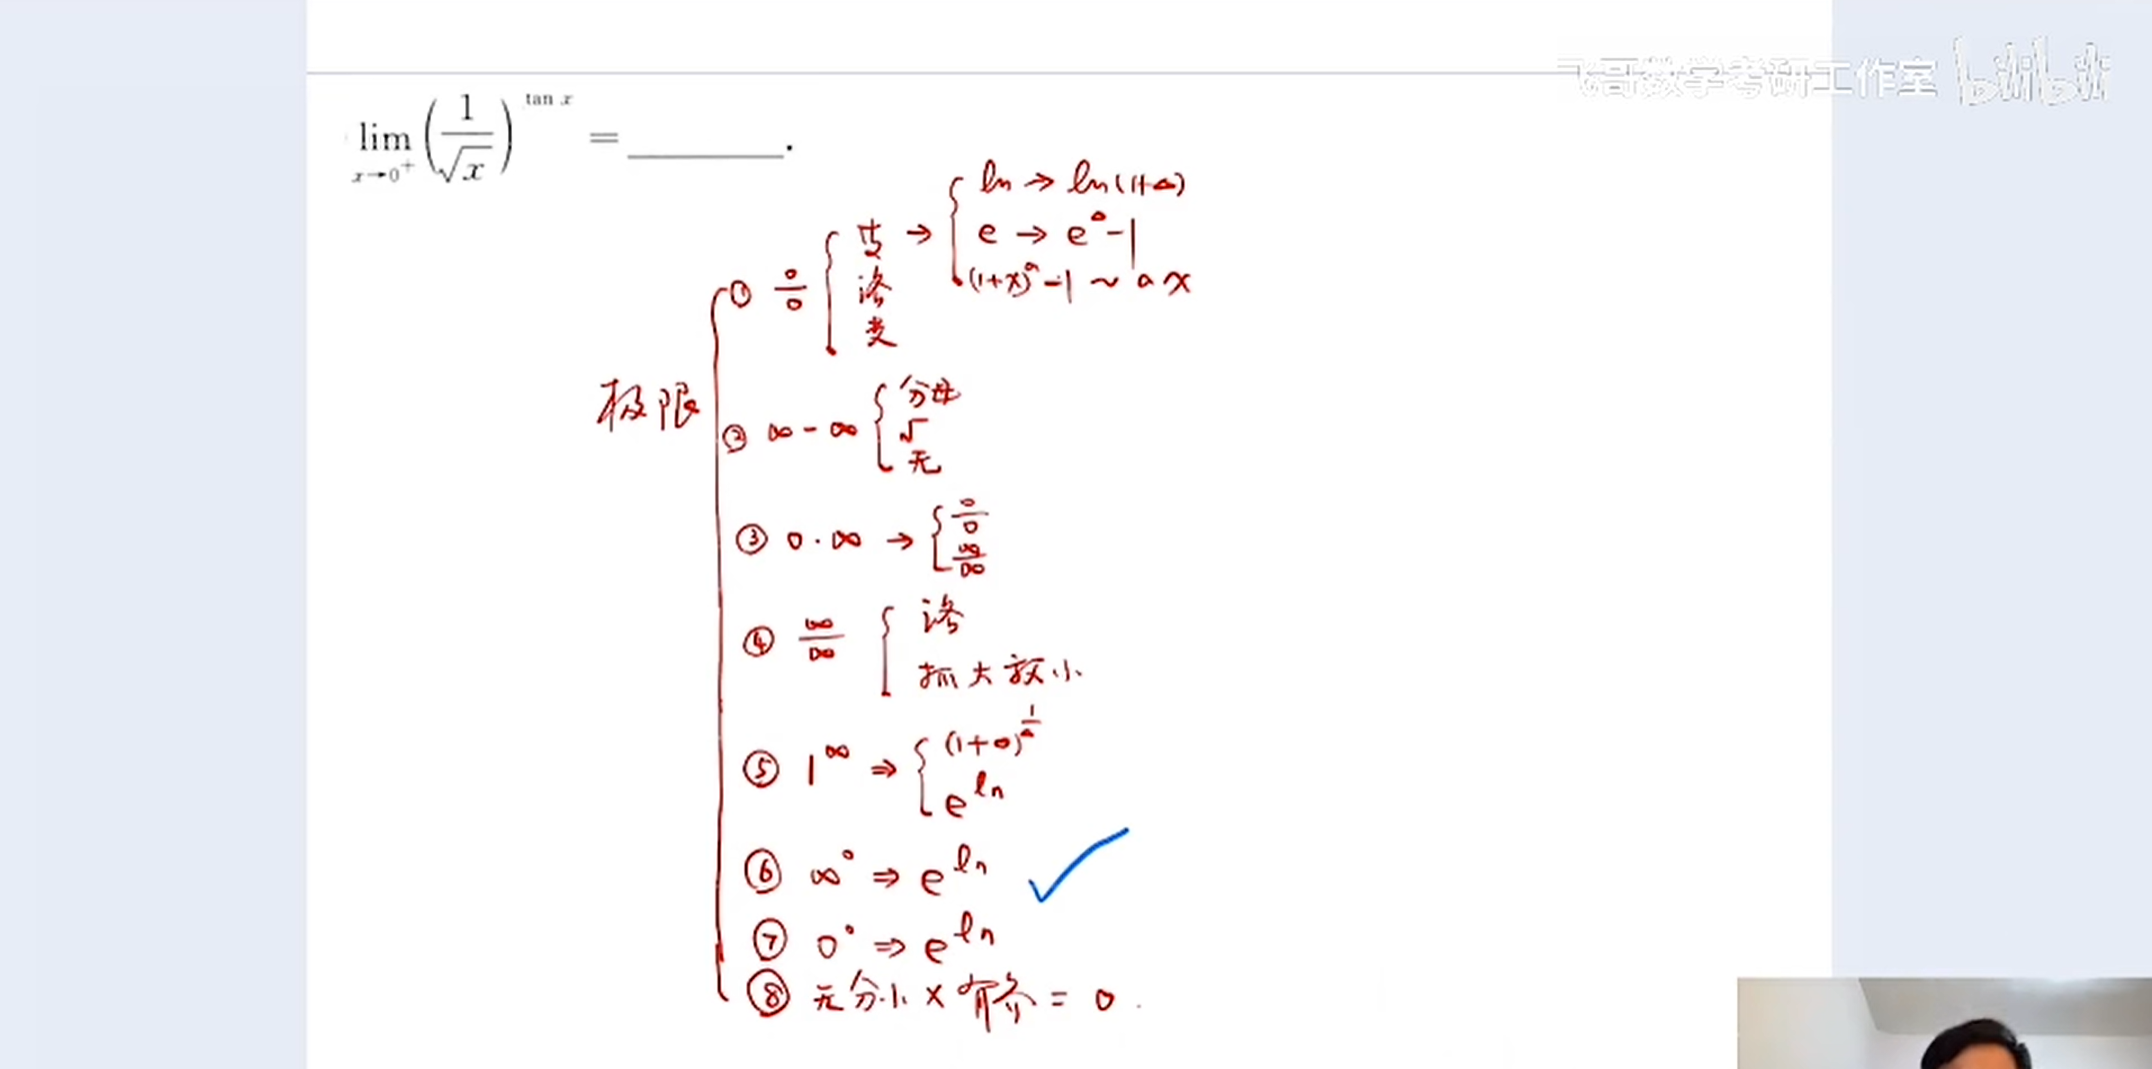 飞哥数学考研工作室 bilibili
lim x→0⁺ (1/√x)^tan x = ________.
极限
① 0/0 { 节 → { ln → ln(1+△)
e → e^△-1
(1+x)^a-1 ~ ax
洛
变
② ∞-∞ { 分母
√
无
③ 0·∞ → { 0/0
∞/∞
④ ∞/∞ { 洛
抓大放小
⑤ 1^∞ ⇒ { (1+△)^(1/△)
e^ln
⑥ ∞^0 ⇒ e^ln ✓
⑦ 0^0 ⇒ e^ln
⑧ 无穷小 × 有界 = 0.